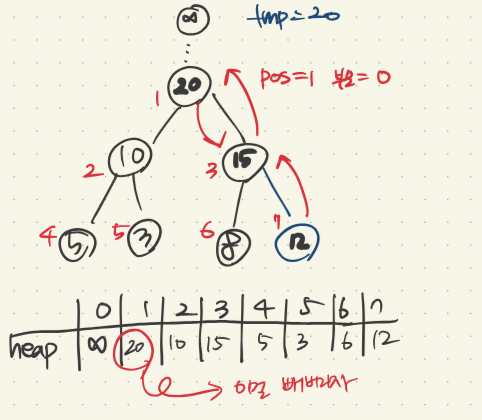 ∞ tmp=20
20 pos=1 부모=0
1
10 15
2 3
4 5 5 3 6 8 7 12
0 1 2 3 4 5 6 7
heap ∞ 20 10 15 5 3 6 12
이걸